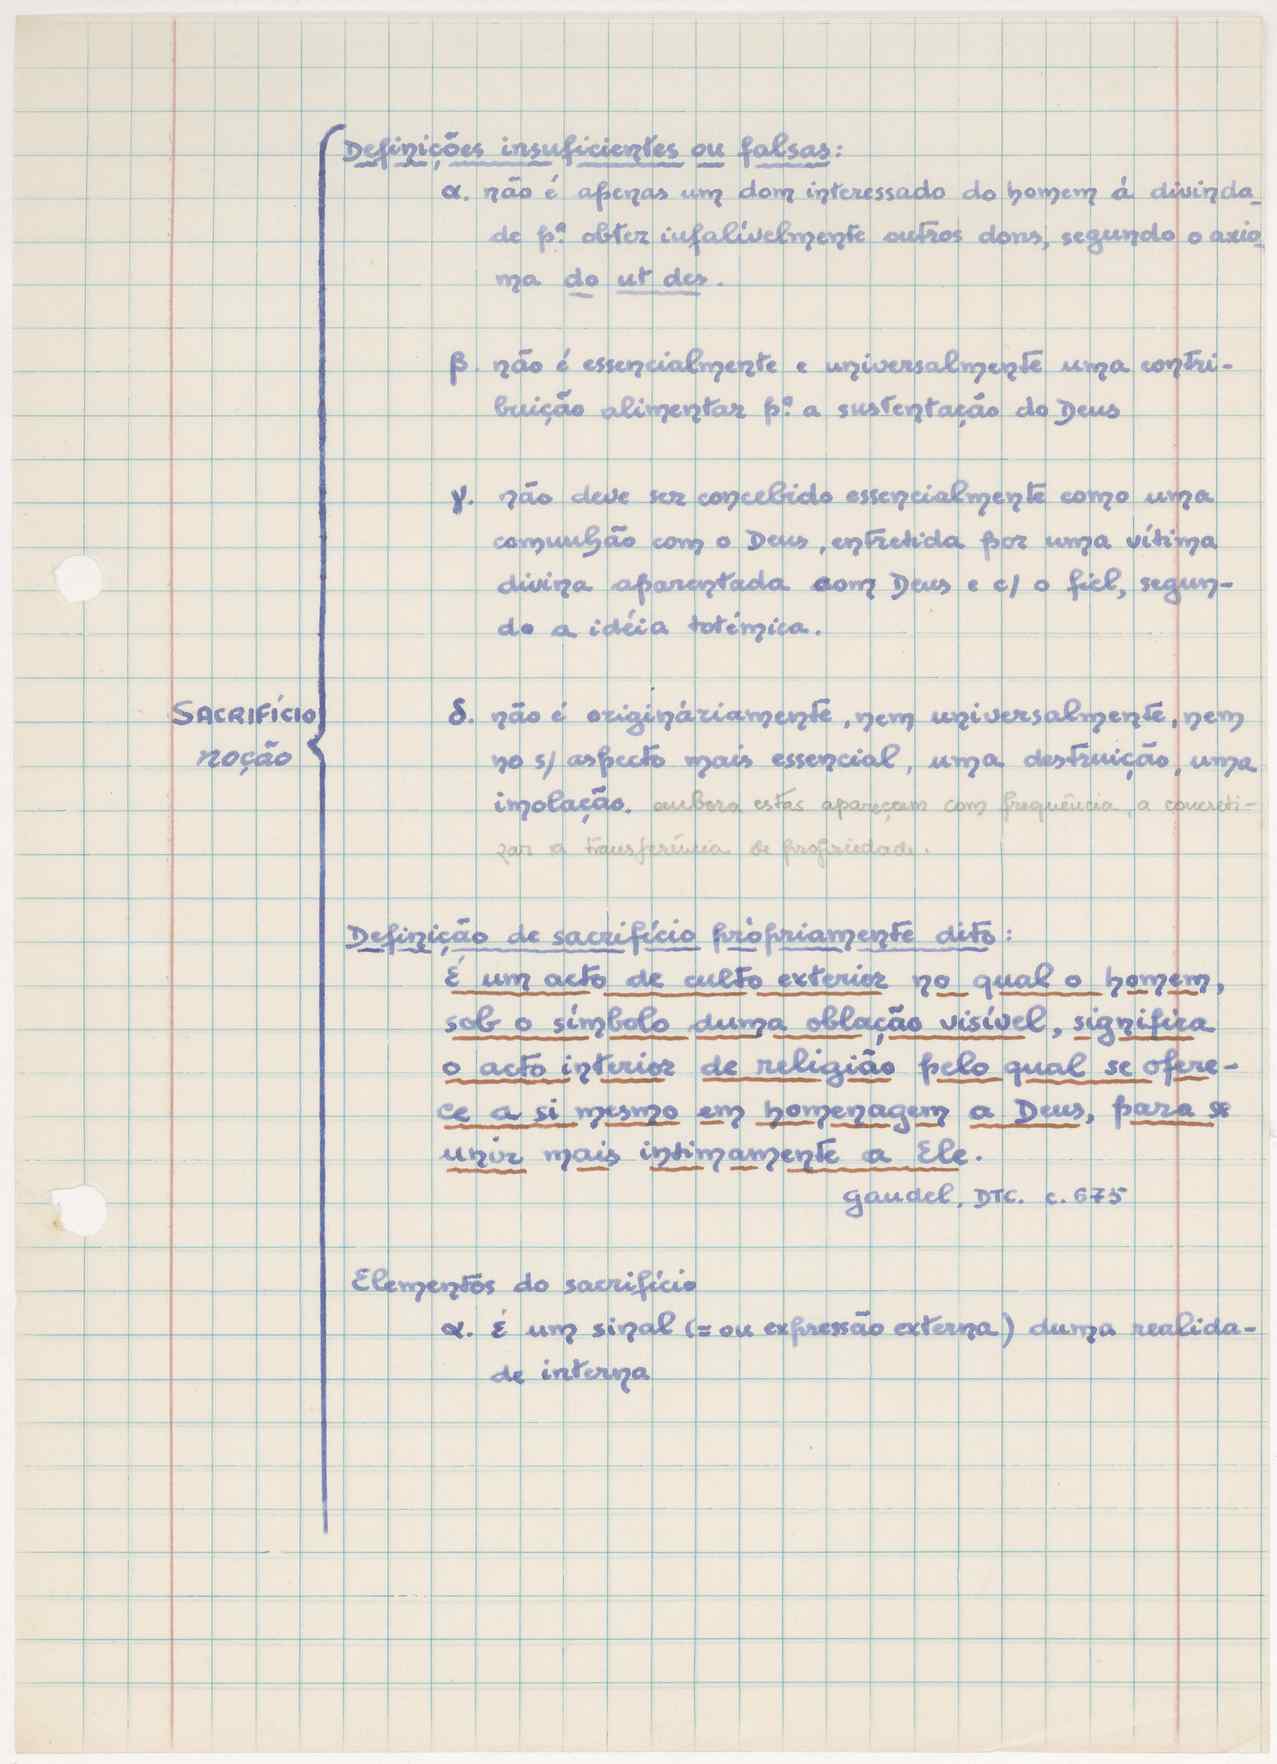 Definições insuficientes ou falsas:
α. não é apenas um dom interessado do homem á divinda_
de pª. obter infalívelmente outros dons, segundo o axio_
ma do ut des.
β. não é essencialmente e universalmente uma contri-
buição alimentar pª. a sustentação do Deus
γ. não deve ser concebido essencialmente como uma
comunhão com o Deus, entretida por uma vítima
divina aparentada com Deus e c/ o fiel, segun-
do a idéia totémica.
SACRIFÍCIO
noção
δ. não é origináriamente, nem universalmente, nem
no s/ aspecto mais essencial, uma destruição, uma
imolação. embora estas apareçam com frequência, a concreti-
zar a transferência de propriedade.
Definição de sacrifício pròpriamente dito:
É um acto de culto exterior no qual o homem,
sob o símbolo duma oblação visível, significa
o acto interior de religião pelo qual se ofere-
ce a si mesmo em homenagem a Deus, para se
unir mais intimamente a Ele.
gaudel, DTC. c. 675
Elementos do sacrifício
α. É um sinal (= ou expressão externa) duma realida-
de interna